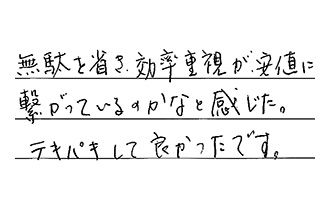 無駄を省き、効率重視が、安値に
繋がっているのかなと感じた。
テキパキして良かったです。